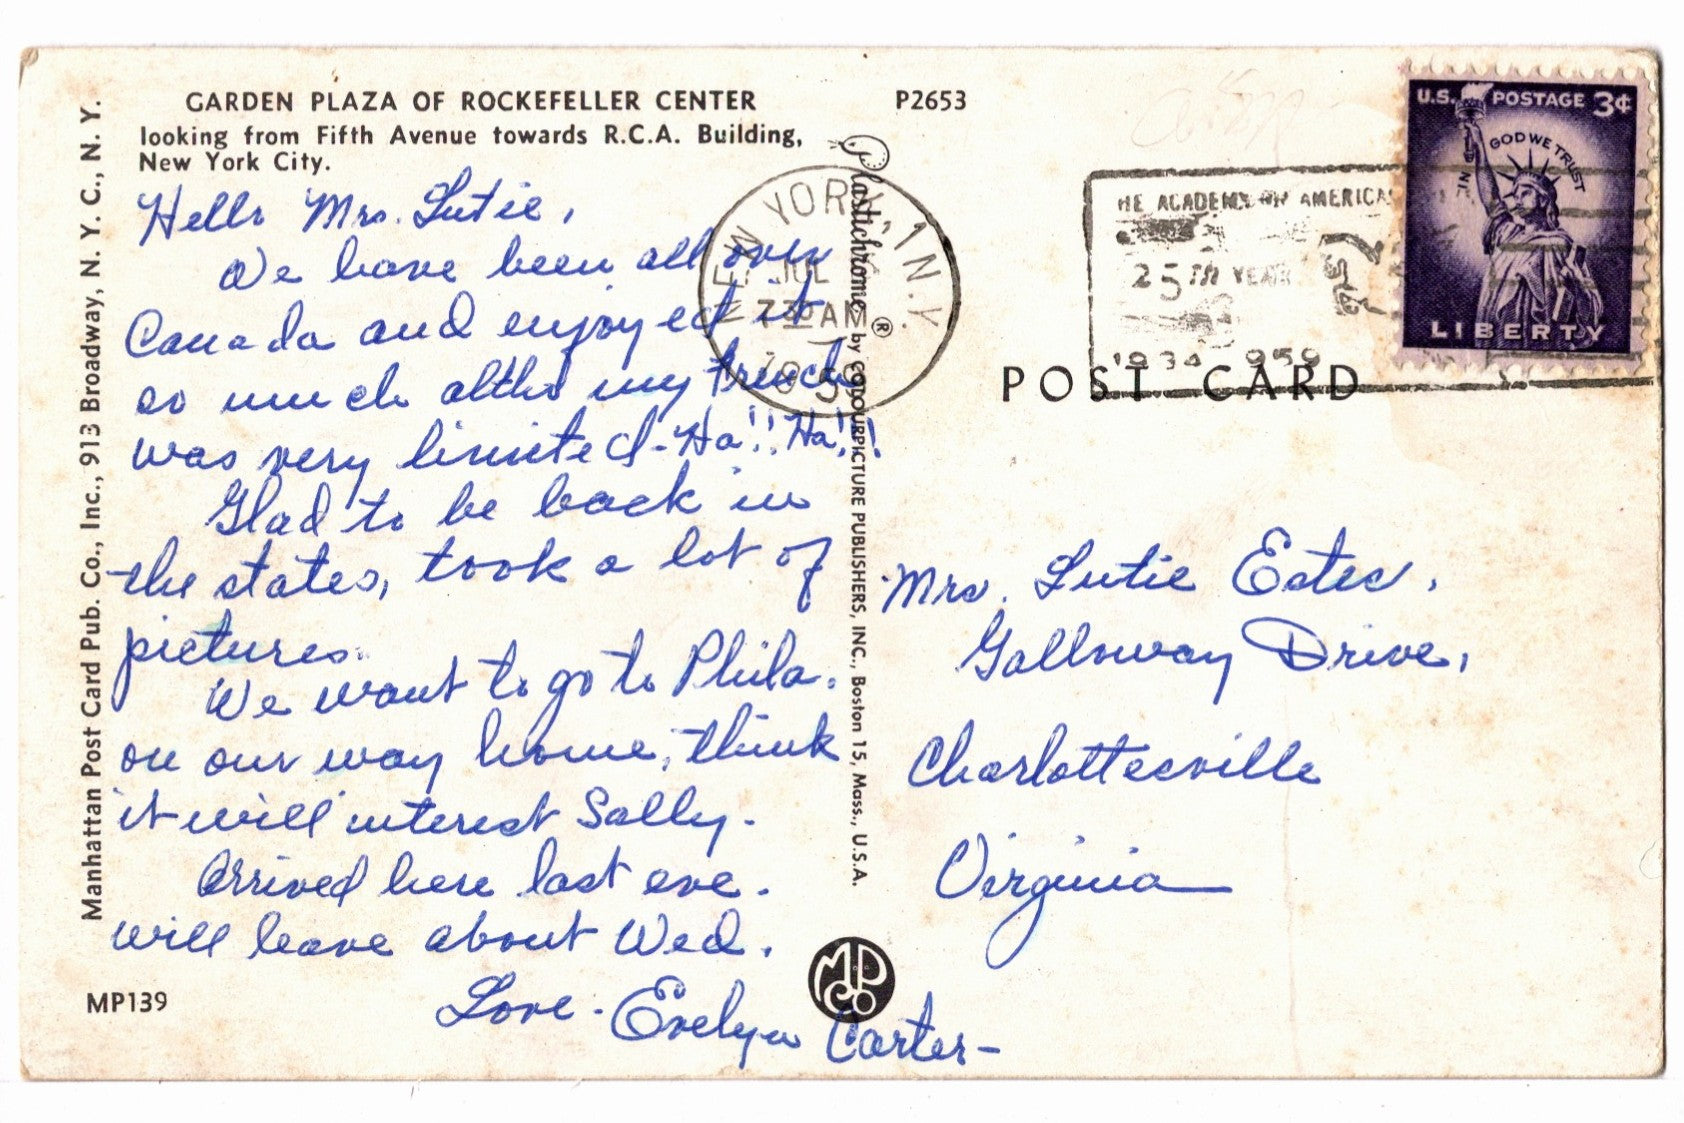 GARDEN PLAZA OF ROCKEFELLER CENTER
looking from Fifth Avenue towards R.C.A. Building,
New York City.
P2653
Hello Mrs. Lutie,
We have been all over
Canada and enjoyed it
so much altho my French
was very limited - Ha!! Ha!!
Glad to be back in
the states, took a lot of
pictures.
We want to go to Phila.
on our way home, think
it will interest Sally.
Arrived here last eve.
will leave about Wed.
Love - Evelyn Carter -
MP139
Manhattan Post Card Pub. Co., Inc., 913 Broadway, N. Y. C., N. Y.
Plastichrome ® by COLOURPICTURE PUBLISHERS, INC., Boston 15, Mass., U.S.A.
MPCo
NEW YORK, 1 N.Y.
JUL
7 30 AM
1959
HE ACADEMY AMERICA
25TH YEAR
1934 959
U.S. POSTAGE 3¢
IN GOD WE TRUST
LIBERTY
POST CARD
Mrs. Lutie Estes,
Galloway Drive,
Charlottesville
Virginia